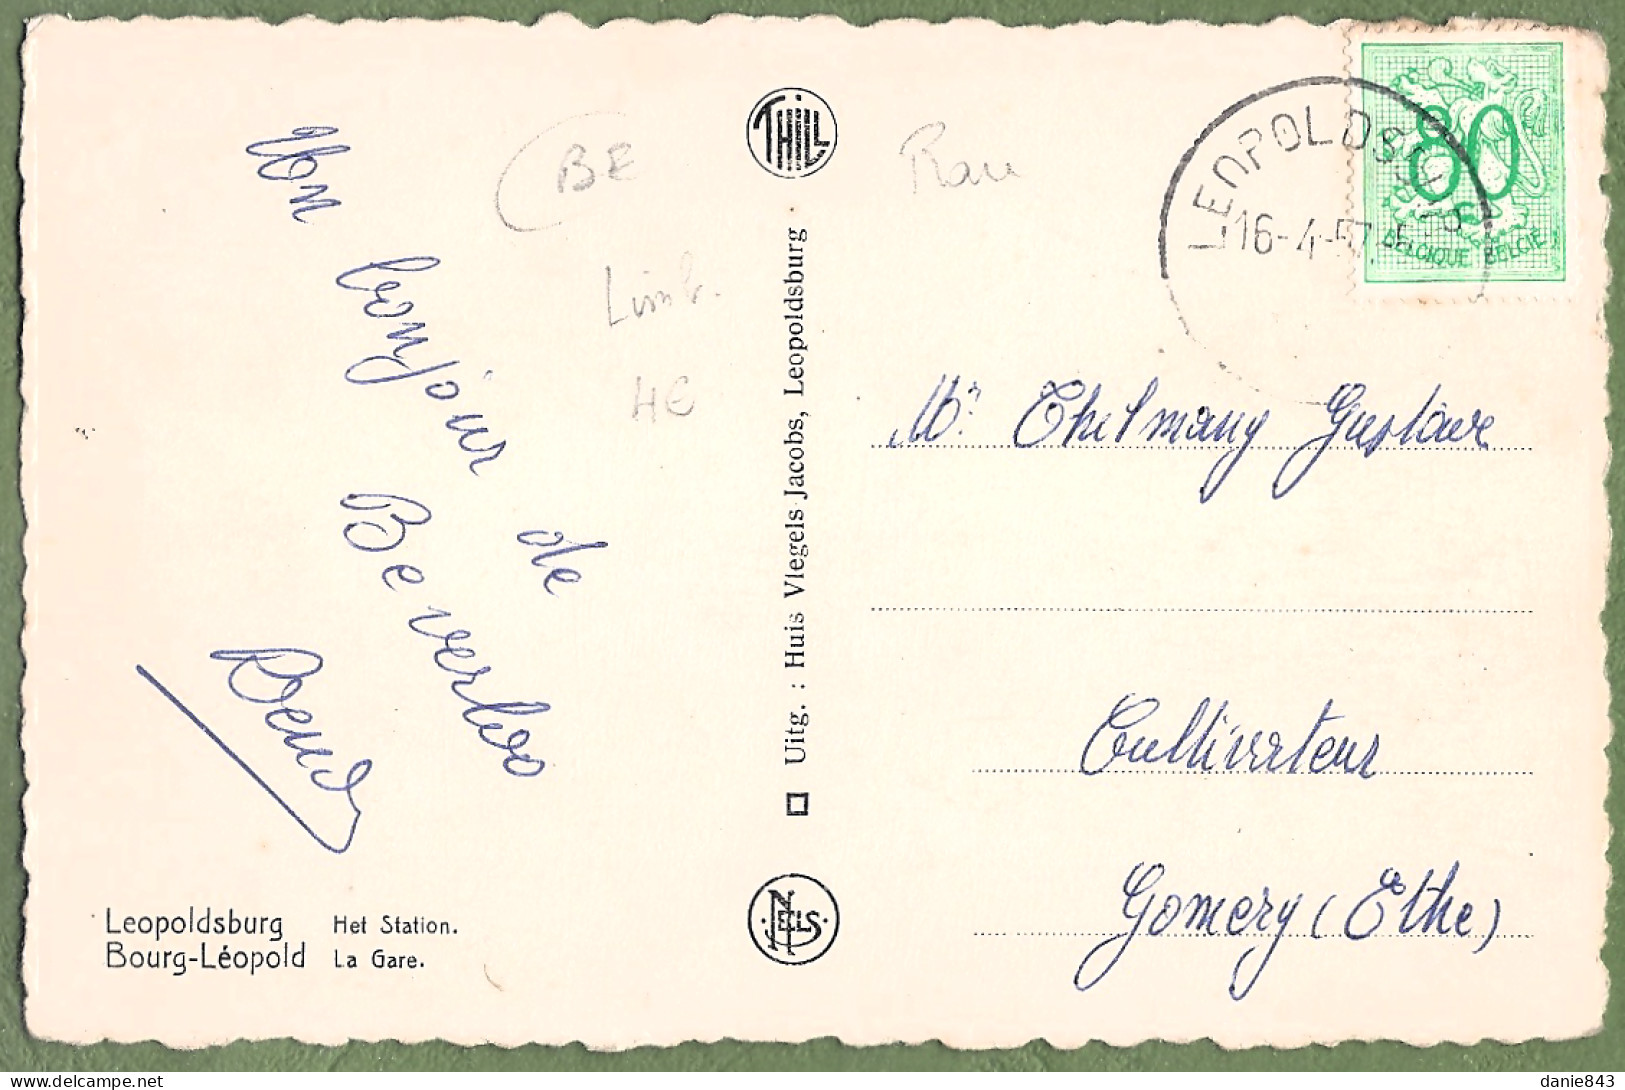 Un bonjour de
Beverloo
BE
Limb.
4€
THILL
Uitg. : Huis Vlegels Jacobs, Leopoldsburg.
NELS
LEOPOLDSB
16-4-57
80
BELGIQUE BELGIË
Mr. Thelmany Gustave
Cultivateur
Gomery (Ethe)
Leopoldsburg Het Station.
Bourg-Léopold La Gare.
danie843